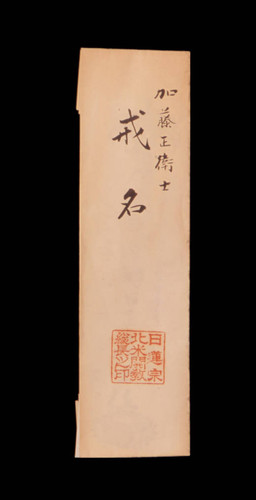 加藤正衛士
戒名
日蓮宗
北米開教
長之印